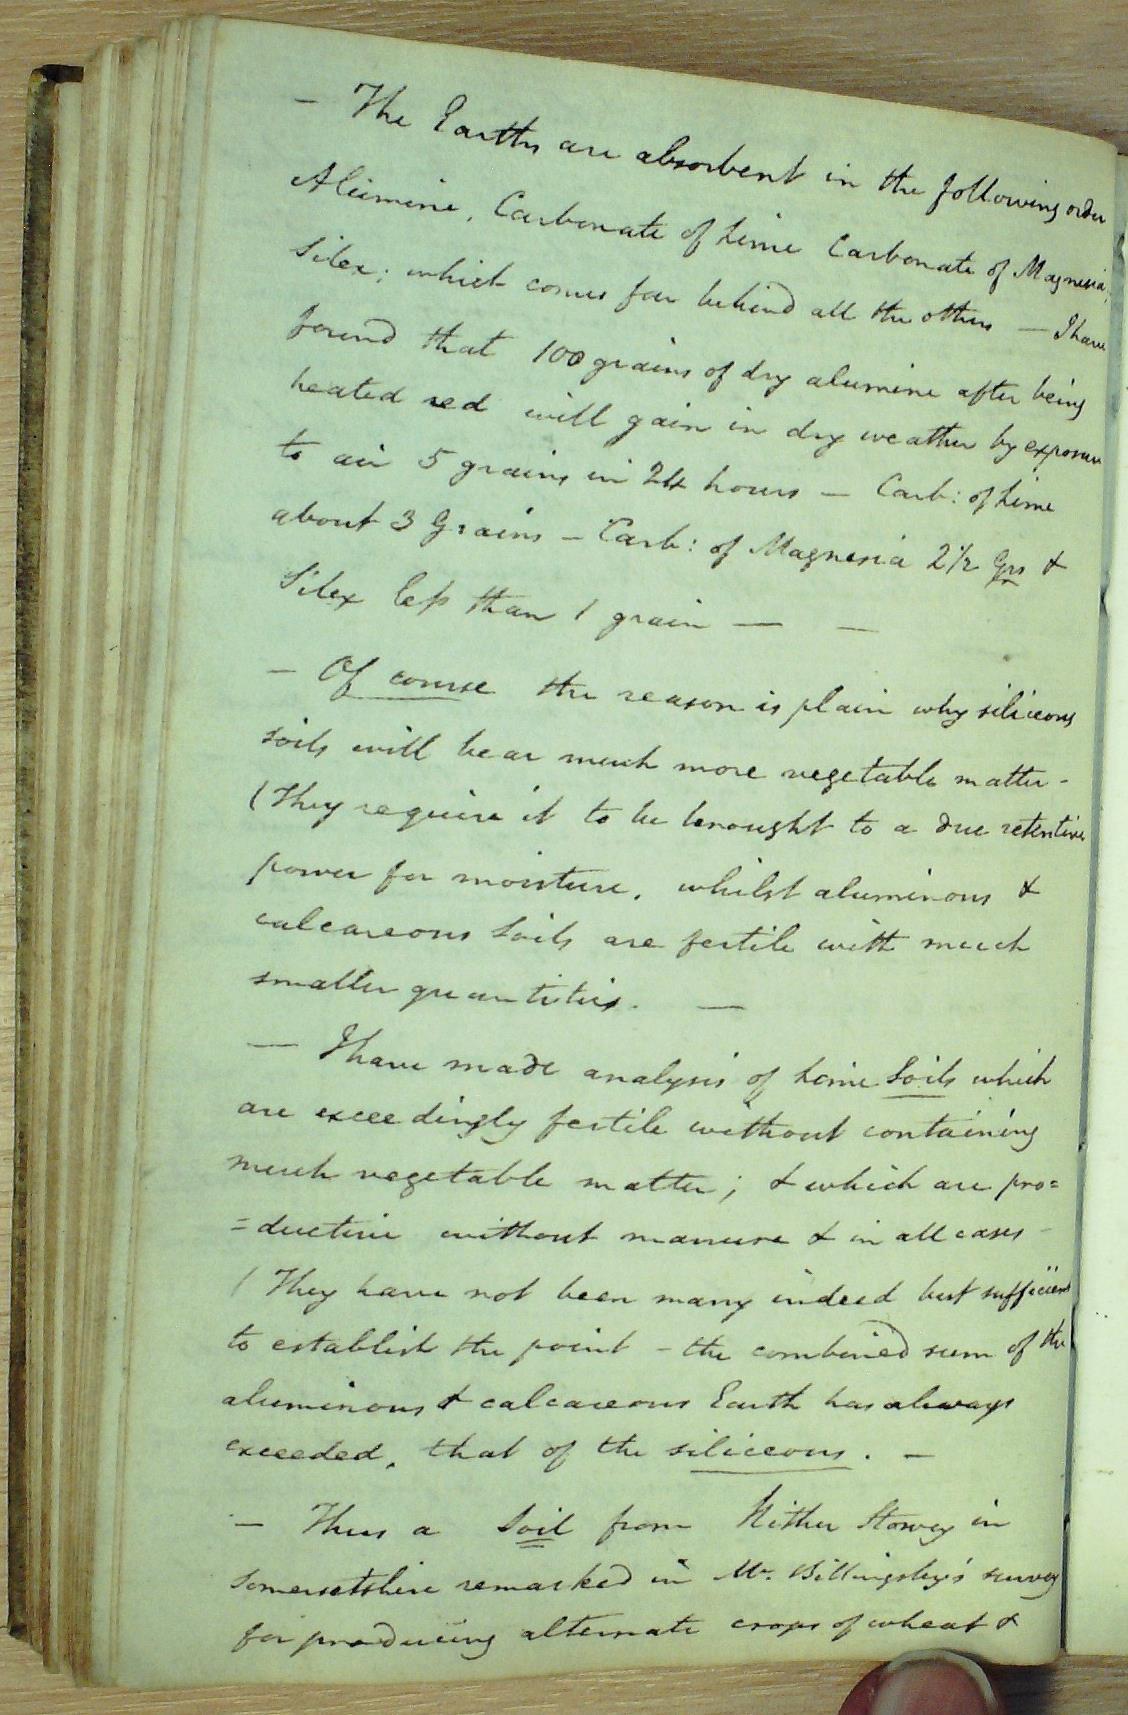 – The Earths are absorbent in the following order
Alumine, Carbonate of Lime Carbonate of Magnesia,
Silex; which comes far behind all the others — I have
found that 100 grains of dry alumine after being
heated red will gain in dry weather by exposure
to air 5 grains in 24 hours — Carb: of Lime
about 3 Grains – Carb: of Magnesia 2 1/2 Grs &
Silex less than 1 grain — —
– Of course the reason is plain why siliceous
soils will bear much more vegetable matter -
(They require it to be brought to a due retentive
power for moisture, whilst aluminous &
calcareous Soils are fertile with much
smaller quantities. —
— I have made analysis of some Soils which
are exceedingly fertile without containing
much vegetable matter; & which are pro=
=ductive without manure & in all cases -
( They have not been many indeed but sufficient
to establish the point – the combined sum of the
aluminous & calcareous Earth has always
exceeded, that of the siliceous. –
– Thus a Soil from Nither Stowey in
Somersetshire remarked in Mr. Billingsley's survey
for producing alternate crops of wheat &